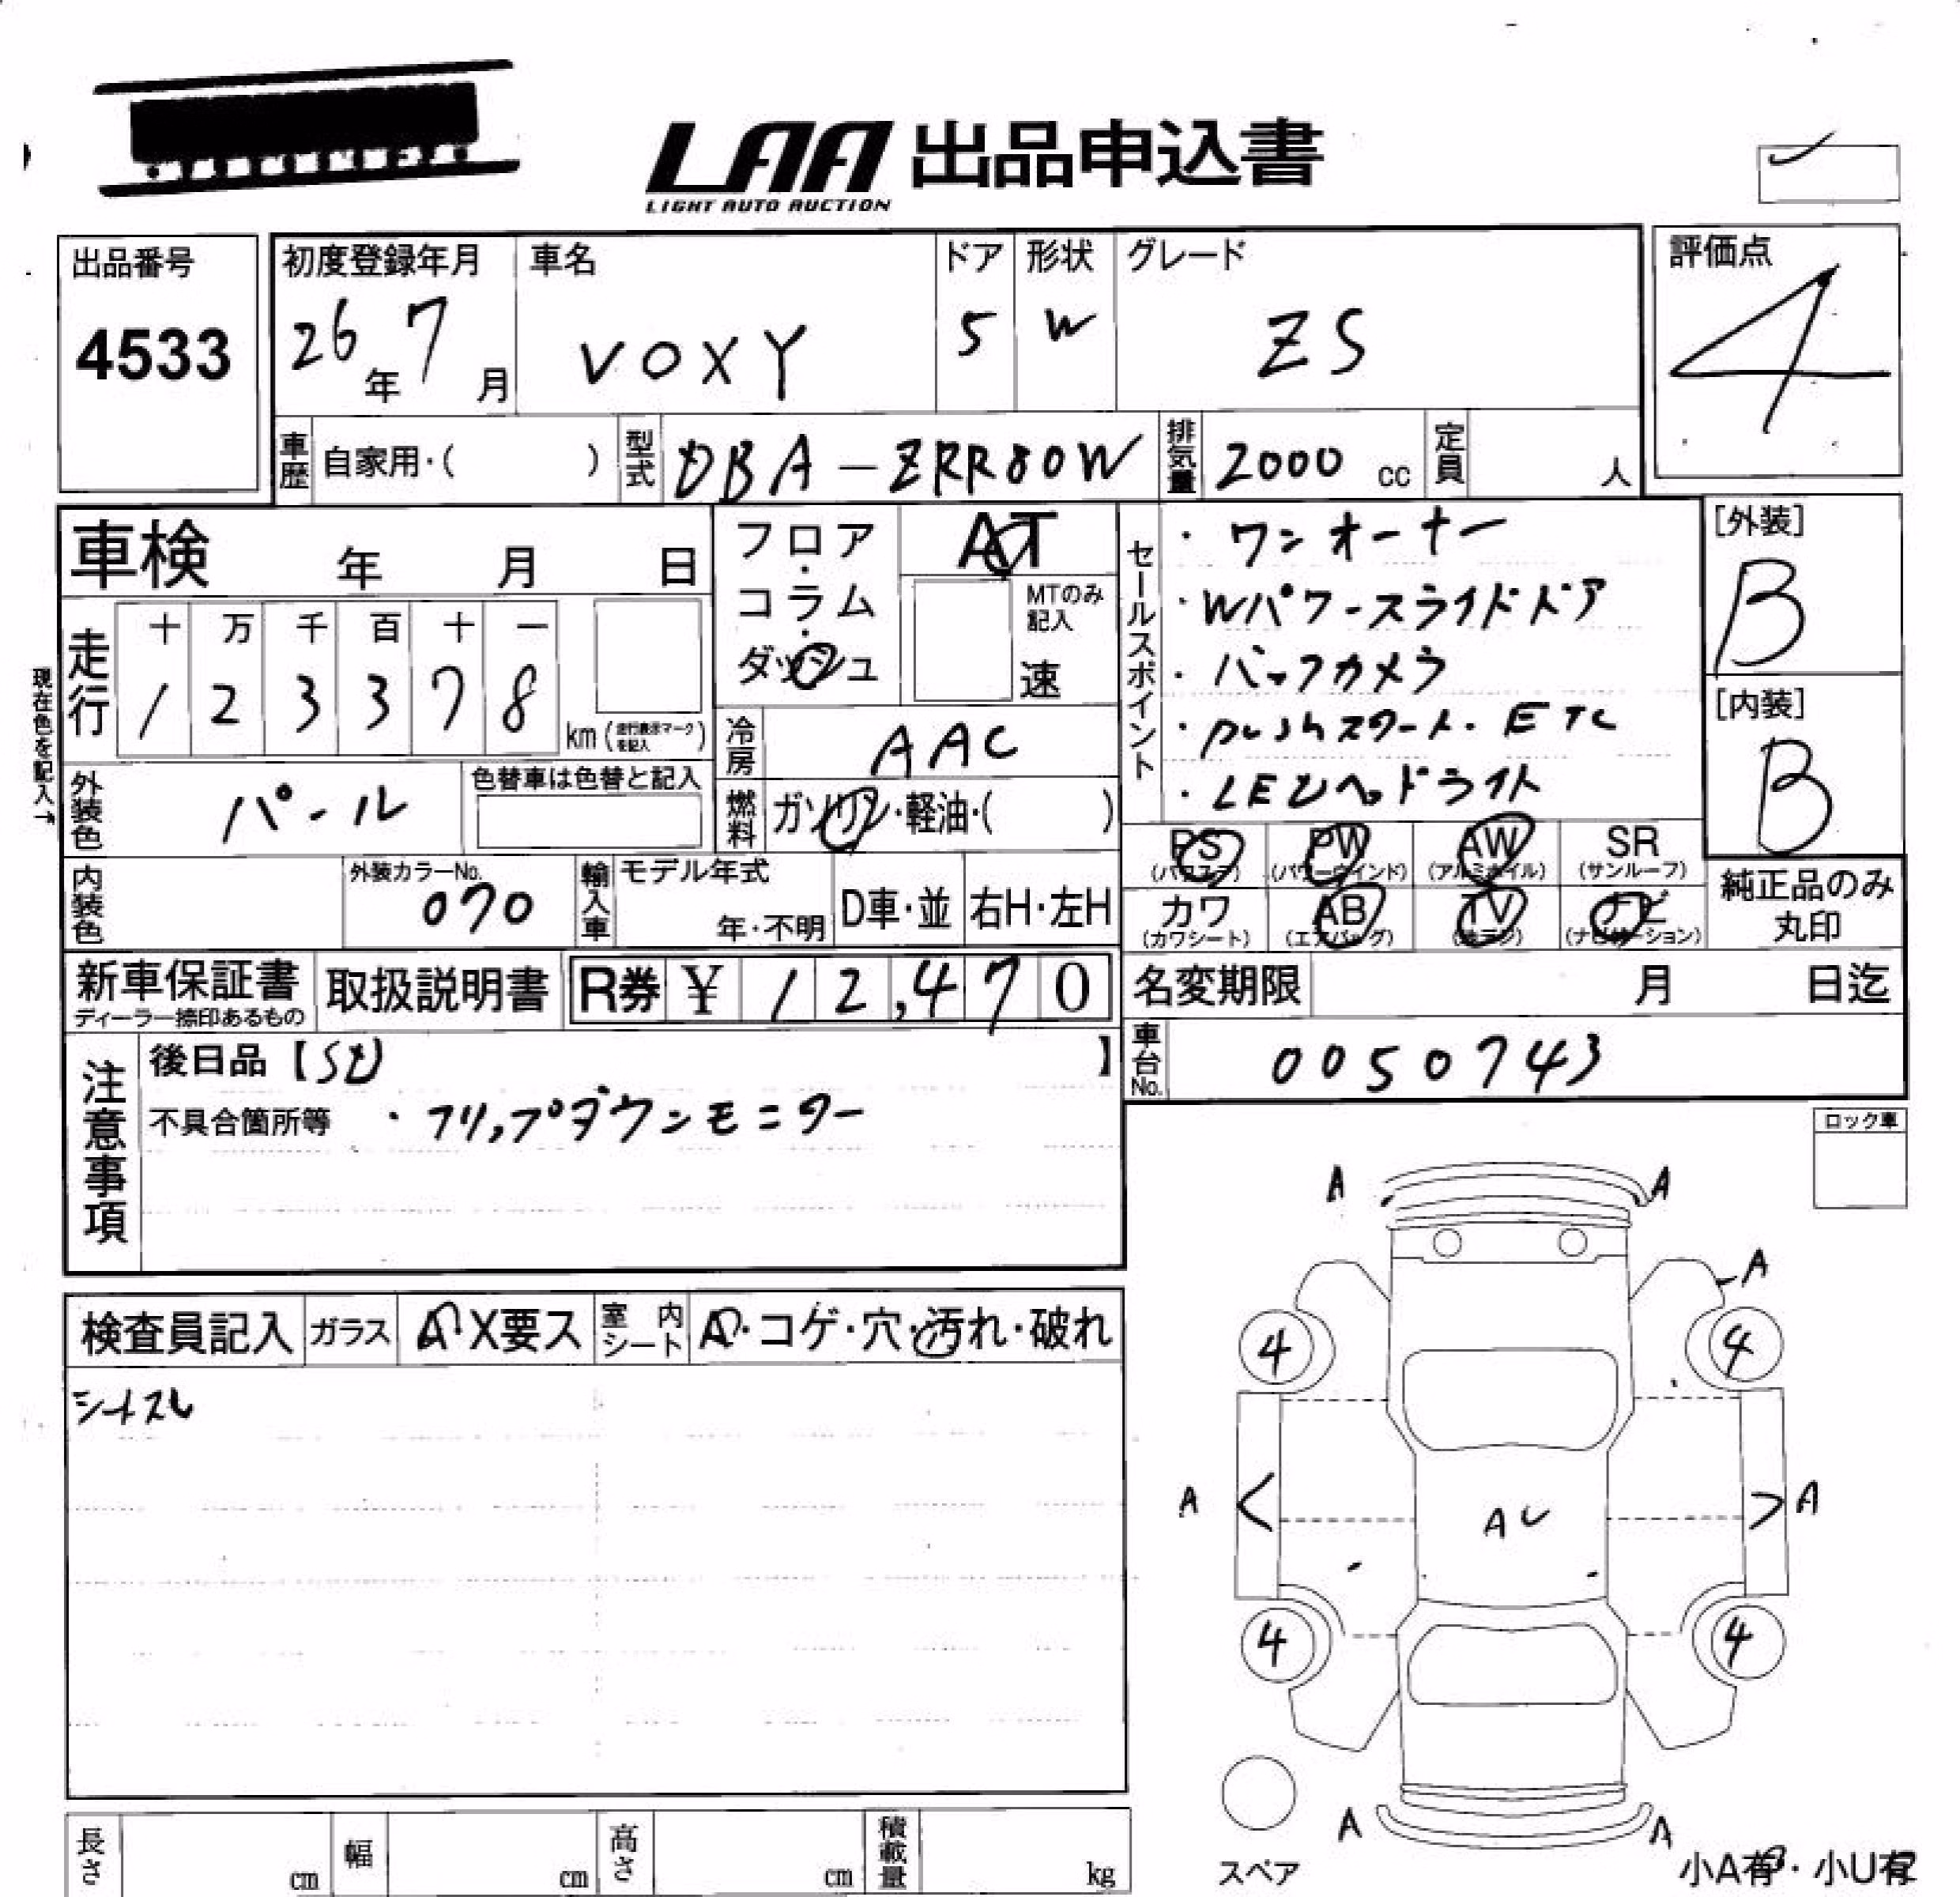 LAA 出品申込書
LIGHT AUTO AUCTION
出品番号
4533
初度登録年月
26年 7月
車名
VOXY
ドア
5
形状
W
グレード
ZS
評価点
4
車歴
自家用・( )
型式
DBA-ZRR80W
排気量
2000 cc
定員
人
車検 年 月 日
フロア・コラム・ダッシュ
AT
MTのみ記入
速
セールスポイント
・ワンオーナー
・Wパワースライドドア
・バックカメラ
・pushスタート・ETC
・LEDヘッドライト
[外装]
B
[内装]
B
現在色を記入→
走行
十 万 千 百 十 一
1 2 3 3 7 8
km (走行表示マークを記入)
冷房
AAC
外装色
パール
色替車は色替と記入
燃料
ガソリン・軽油・( )
PS PW AW SR
(パワステ) (パワーウインド) (アルミホイル) (サンルーフ)
カワ AB TV ナビ
(カワシート) (エアバッグ) (地デジ) (ナビゲーション)
純正品のみ丸印
内装色
外装カラーNo.
070
輸入車
モデル年式
年・不明
D車・並
右H・左H
新車保証書
ディーラー捺印あるもの
取扱説明書
R券 ¥ 12,470
名変期限 月 日迄
車台No.
0050743
注意事項
後日品【SD】
不具合箇所等 ・フリップダウンモニター
ロック車
検査員記入
ガラス
A・X要ス
室内シート
A・コゲ・穴・汚れ・破れ
シートスレ
A A
A
4 4
A < > A
AU
4 4
A A
スペア
小A有・小U有
長さ cm
幅 cm
高さ cm
積載量 kg